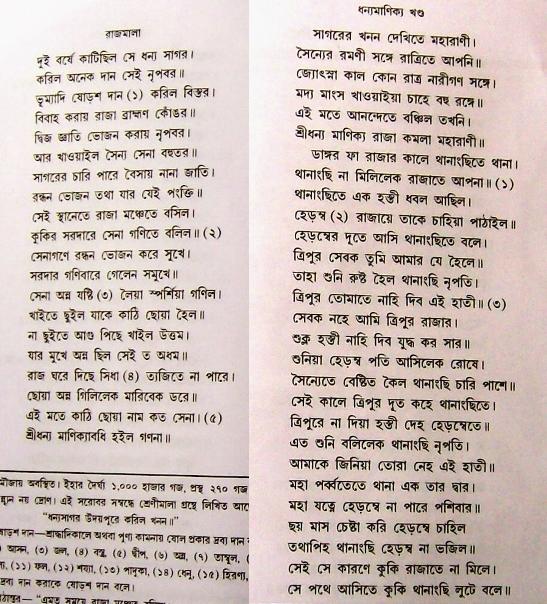 রাজমালা
দুই বর্ষে কাটিছিল সে ধন্য সাগর।
করিল অনেক দান সেই নৃপবর॥
ভূম্যাদি ষোড়শ দান (১) করিল বিস্তর।
বিবাহ করায় রাজা ব্রাহ্মণ কোঁঙর॥
দ্বিজ জ্ঞাতি ভোজন করায় নৃপবর।
আর খাওয়াইল সৈন্য সেনা বহুতর॥
সাগরের চারি পারে বৈসায় নানা জাতি।
রন্ধন ভোজন তথা যার যেই পংক্তি॥
সেই স্থানেতে রাজা মঞ্চেতে বসিল।
কুকির সরদারে সেনা গণিতে বলিল॥ (২)
সেনাগণে রন্ধন ভোজন করে সুখে।
সরদার গণিবারে গেলেন সমুখে॥
সেনা অন্ন যষ্টি (৩) লৈয়া স্পর্শিয়া গণিল।
খাইতে ছুইল যাকে কাঠি ছোয়া হৈল॥
না ছুইতে আগু পিছে খাইল উত্তম।
যার মুখে অন্ন ছিল সেই ত অধম॥
রাজ ঘরে দিছে সিধা (৪) ত্যজিতে না পারে।
ছোয়া অন্ন গিলিলেক মারিবেক ডরে॥
এই মতে কাঠি ছোয়া নাম কত সেনা। (৫)
শ্রীধন্য মাণিক্যাবধি হইল গণনা॥
মীজায় অবস্থিত। ইহার দৈর্ঘ্য ১,০০০ হাজার গজ, প্রস্থ ২৭০ গজ
ন্যূন নয় দ্রোণ। এই সরোবর সম্বন্ধে শ্রেণীমালা গ্রন্থে লিখিত আছে
"ধন্যসাগর উদয়পুরে করিল খনন॥"
ষোড়শ দান—শ্রাদ্ধাদিকালে অথবা পুণ্য কামনায় ষোল প্রকার দ্রব্য দান
আসন, (৩) জল, (৪) বস্ত্র, (৫) দ্বীপ, (৬) অন্ন, (৭) তাম্বুল,
(১১) ফল, (১২) শয্যা, (১৩) পাদুকা, (১৪) ধেনু, (১৫) হিরণ্য,
দ্রব্য দান করাকে ষোড়শ দান বলে।
ধন্যমাণিক্য খণ্ড
সাগরের খনন দেখিতে মহারাণী।
সৈন্যের রমণী সঙ্গে রাত্রিতে আপনি॥
জ্যোৎস্না কাল কোন রাত্র নারীগণ সঙ্গে।
মদ্য মাংস খাওয়াইয়া চাহে বহু রঙ্গে॥
এই মতে আনন্দেতে বঞ্চিল তখনি।
শ্রীধন্য মাণিক্য রাজা কমলা মহারাণী॥
ডাঙ্গর ফা রাজার কালে থানাংছিতে থানা।
থানাংছি না মিলিলেক রাজাতে আপনা॥ (১)
থানাংছিতে এক হস্তী ধবল আছিল।
হেড়ম্ব (২) রাজায়ে তাকে চাহিয়া পাঠাইল॥
হেড়ম্বের দূতে আসি থানাংছিতে বলে।
ত্রিপুর সেবক তুমি আমার যে হৈলে॥
তাহা শুনি রুষ্ট হৈল থানাংছি নৃপতি।
ত্রিপুর তোমাতে নাহি দিব এই হাতী॥ (৩)
সেবক নহে আমি ত্রিপুর রাজার।
শুক্ল হস্তী নাহি দিব যুদ্ধ কর সার॥
শুনিয়া হেড়ম্ব পতি আসিলেক রোষে।
সৈন্যেতে বেষ্টিত কৈল থানাংছি চারি পাশে॥
সেই কালে ত্রিপুর দূত কহে থানাংছিতে।
ত্রিপুরে না দিয়া হস্তী দেহ হেড়ম্বেতে॥
এত শুনি বলিলেক থানাংছি নৃপতি।
আমাকে জিনিয়া তোরা নেহ এই হাতী॥
মহা পর্ব্বতেতে থানা এক তার দ্বার।
মহা যত্নে হেড়ম্বে না পারে পশিবার॥
ছয় মাস চেষ্টা করি হেড়ম্বে চাহিল
তথাপিহ থানাংছি হেড়ম্ব না ভজিল॥
সেই সে কারণে কুকি রাজাতে না মিলে।
সে পথে আসিতে কুকি থানাংছি লুটে বলে॥